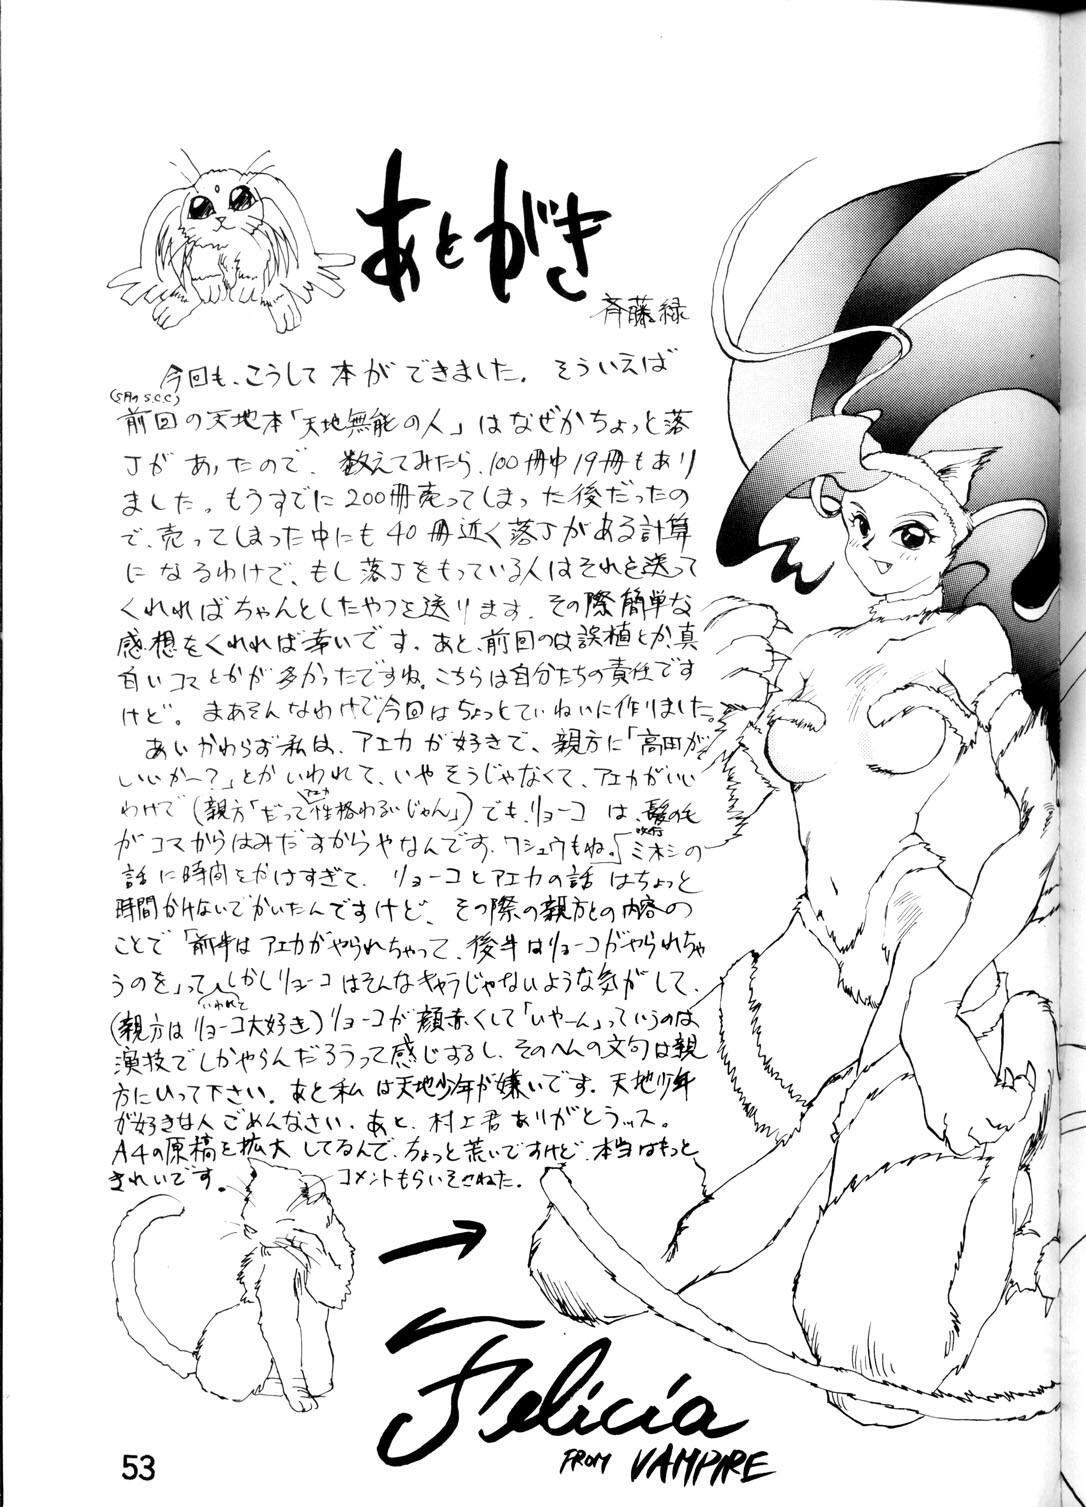 あとがき
斉藤緑
今回も、こうして本ができました。そういえば
(5月の S.C.C)
前回の天地本「天地無能の人」はなぜかちょっと落
丁があったので、数えてみたら、100冊中19冊もあり
ました。もうすでに200冊売ってしまった後だったの
で、売ってしまった中にも40冊近く落丁がある計算
になるわけで、もし落丁をもっている人はそれを送って
くれればちゃんとしたやつを送ります。その際簡単な
感想をくれれば幸いです。あと、前回のは誤植とか、真
白いコマとかが多かったですね。こちらは自分たちの責任です
けど。まあそんなわけで今回はちょっとていねいに作りました。
あいかわらず私は、アエカが好きで、親方に「高田が
いいかー?」とかいわれて、いやそうじゃなくて、アエカがいい
わけで(親方「だってアエカ性格わるいじゃん」)でも、リョーコは、髪の毛
がコマからはみだすからやなんです。ワシュウもね。「ミホシの
話に時間をかけすぎて、リョーコとアエカの話はちょっと
時間かけないでかいたんですけど、その際の親方との内容の
ことで「前半はアエカがやられちゃって、後半はリョーコがやられちゃ
うのを」っていわれて、しかしリョーコはそんなキャラじゃないような気がして、
(親方はリョーコ大好き)リョーコが顔赤くして「いやーん」っていうのは
演技でしかやらんだろうって感じするし、そのへんの文句は親
方にいって下さい。あと私は天地少年が嫌いです。天地少年
が好きな人ごめんなさい。あと、村上君ありがとうッス。
A4の原稿を拡大してるんで、ちょっと荒いですけど、本当はもっと
きれいです。
コメントもらいそこねた。
Felicia
FROM VAMPIRE
53